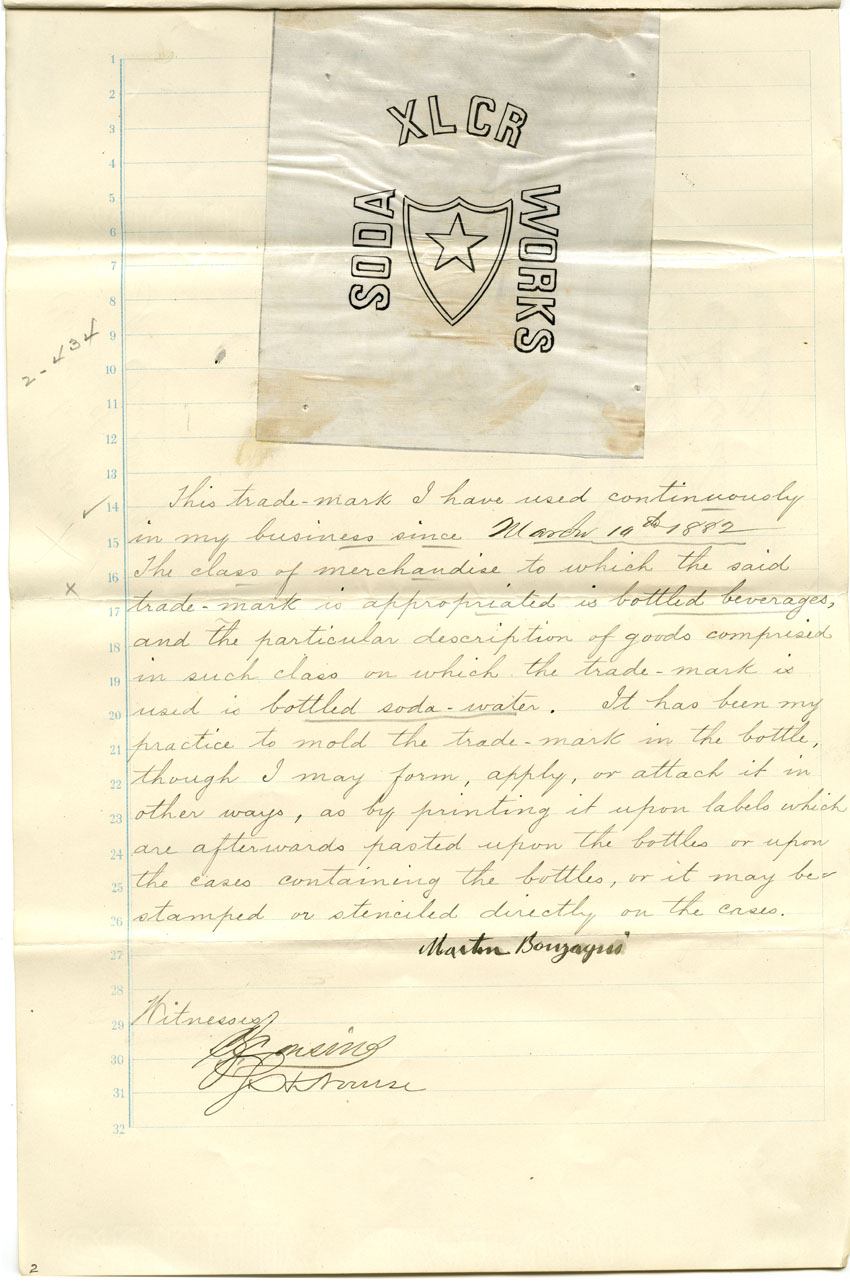 XLCR
SODA
WORKS
1
2
3
4
5
6
7
8
9
10
11
12
13
14
15
16
17
18
19
20
21
22
23
24
25
26
27
28
29
30
31
32
2-434
This trade-mark I have used continuously
in my business since March 14th 1882
The class of merchandise to which the said
trade-mark is appropriated is bottled beverages,
and the particular description of goods comprised
in such class on which the trade-mark is
used is bottled soda-water. It has been my
practice to mold the trade-mark in the bottle,
though I may form, apply, or attach it in
other ways, as by printing it upon labels which
are afterwards pasted upon the bottles or upon
the cases containing the bottles, or it may be
stamped or stenciled directly on the cases.
Martin
Witnesses
2